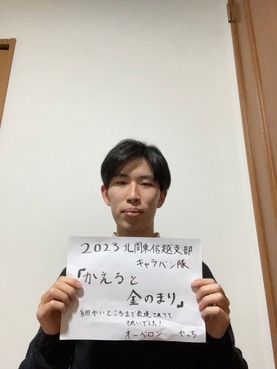 2023 北関東信越支部
キャラバン隊
『かえると
金のまり』
細かいところまで表現されてて
きれいでした!
オーベロン